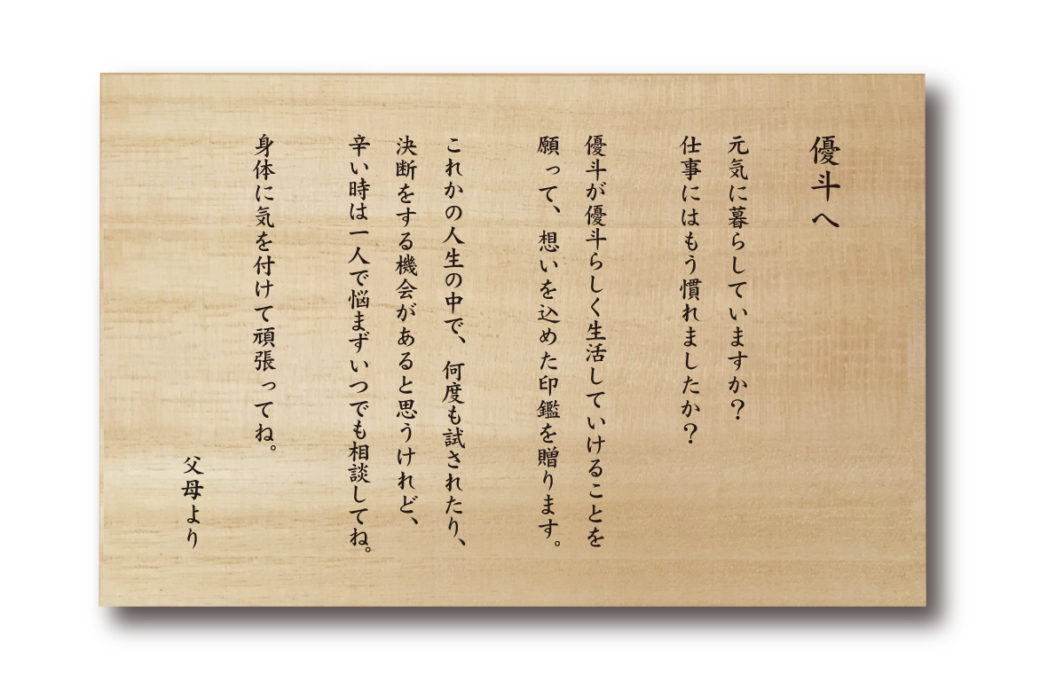 優斗へ
元気に暮らしていますか？
仕事にはもう慣れましたか？
優斗が優斗らしく生活していけることを
願って、想いを込めた印鑑を贈ります。
これかの人生の中で、何度も試されたり、
決断をする機会があると思うけれど、
辛い時は一人で悩まずいつでも相談してね。
身体に気を付けて頑張ってね。
父母より